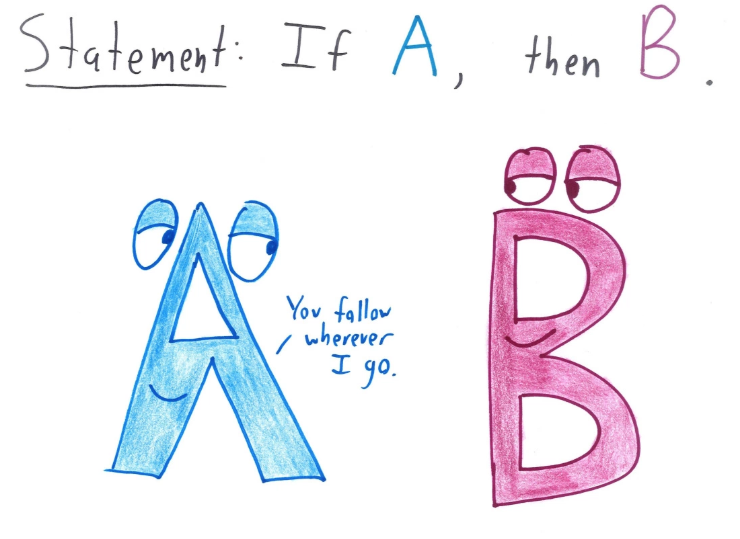 Statement: If A, then B.
You follow
wherever
I go.